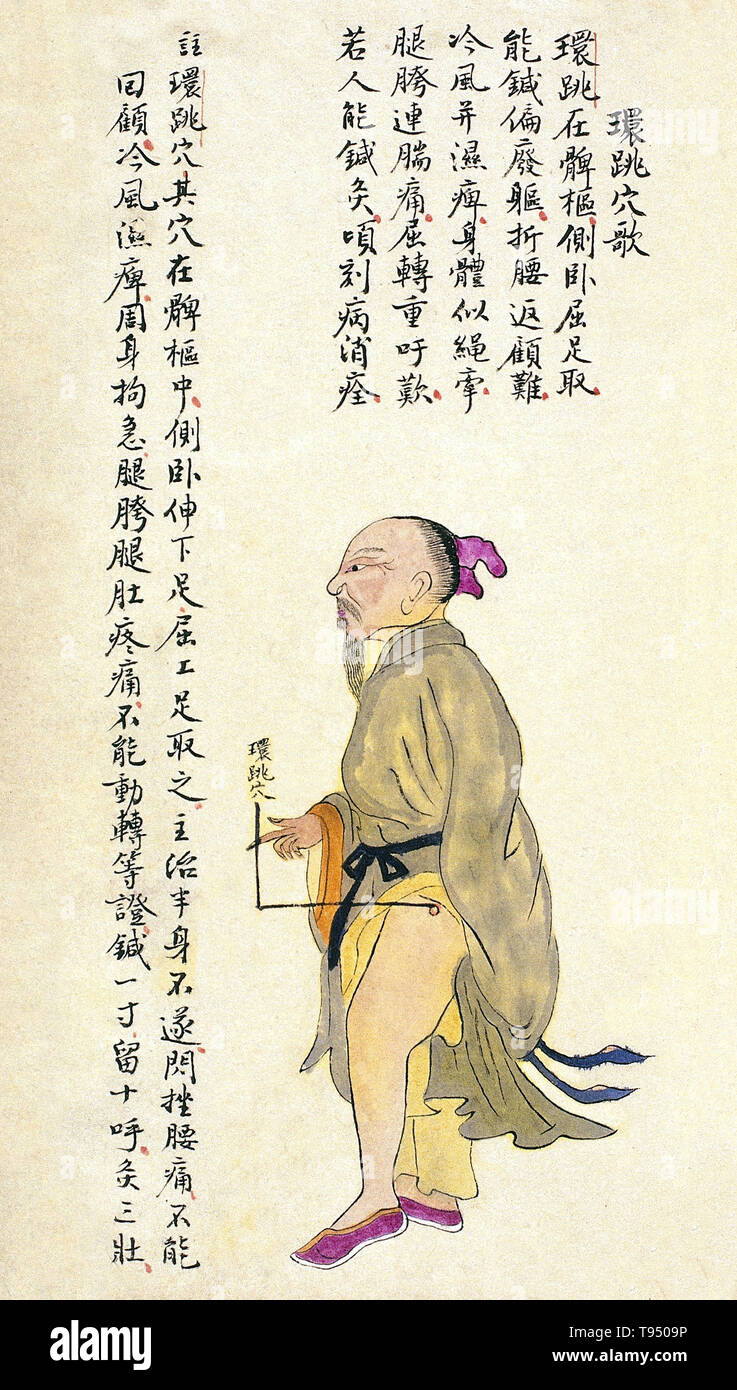 環跳穴歌
環跳在髀樞側卧屈足取
能鍼偏廢軀折腰返顧難
冷風并濕痺身體似繩牽
腿胯連腨痛屈轉重吁歎
若人能鍼灸頃刻病消痊
註環跳穴其穴在髀樞中側卧伸下足屈上足取之主治半身不遂閃挫腰痛不能
回顧冷風濕痺周身拘急腿胯腿肚疼痛不能動轉等證鍼一寸留十呼灸三壯
環跳穴
alamy
Image ID: T9509P
www.alamy.com